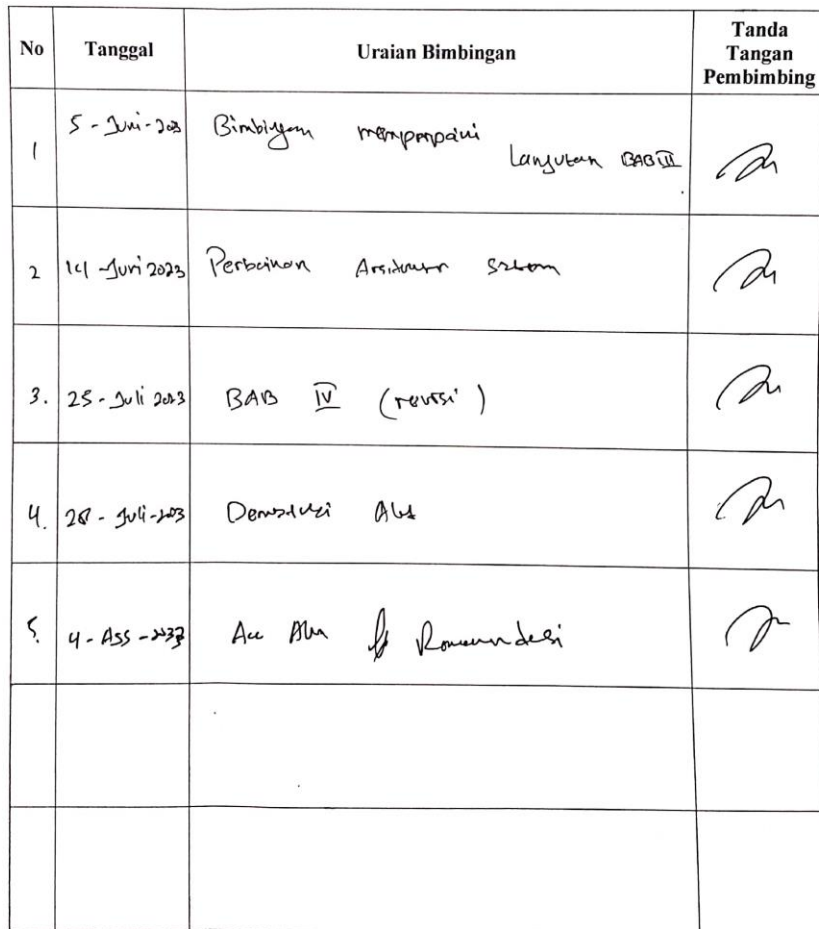 No Tanggal Uraian Bimbingan Tanda Tangan Pembimbing
1 5 - Juni - 2023 Bimbingan memperbaiki
Lanjutan BAB III
2 14 - Juni 2023 Perbaikan Arsitektur Sistem
3. 25 - Juli 2023 BAB IV (revisi)
4. 28 - Juli - 2023 Demonstrasi Alat
5. 4 - Ags - 2023 Acc Alat Rekomendasi